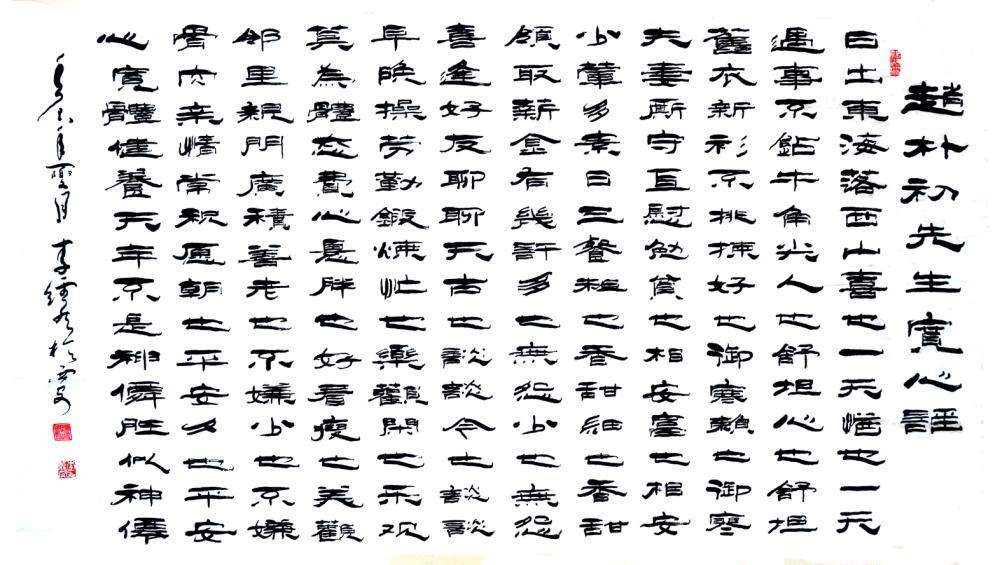 趙朴初先生寬心謡
日出東海落西山喜也一天惱也一天
遇事不鉆牛角尖人也舒坦心也舒坦
舊衣新衫不挑揀好也御寒賴也御寒
夫妻厮守互慰勉貧也相安富也相安
少葷多素日三餐粗也香甜細也香甜
領取薪金有幾許多也無怨少也無怨
喜逢好友聊聊天古也談談今也談談
早晚操勞勤鍛煉忙也樂觀閑也乐观
莫為體态費心思胖也好看瘦也美觀
鄰里親門廣積善老也不嫌少也不嫌
骨肉亲情常祝愿朝也平安夕也平安
心寬體健養天年不是神僊胜似神僊